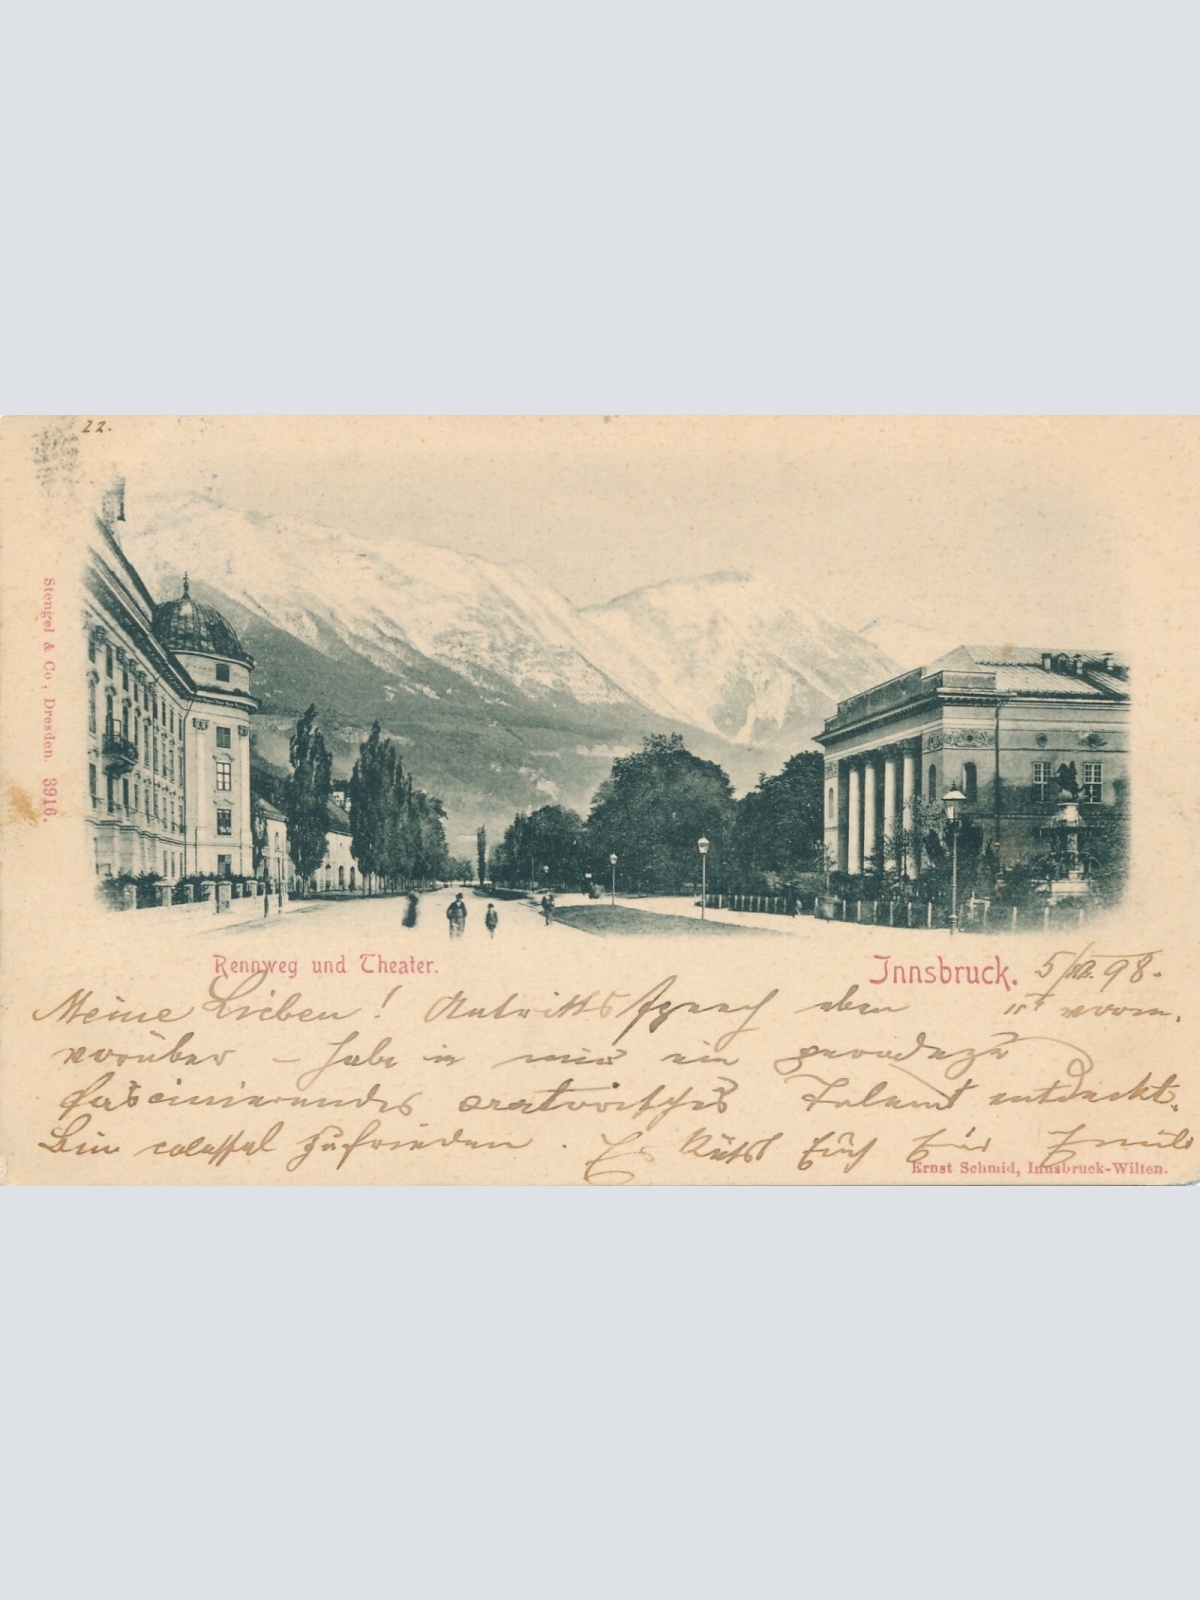 22.
Stengel & Co, Dresden. 3916.
Rennweg und Theater.
Innsbruck. 98.
Meine Lieben! Antrittssprach eben
vorüber – habe in mir ein geradezu
fascinierendes oratorisches Talent entdeckt.
Bin colossal zufrieden. Es küßt Euch Emil
Ernst Schmid, Innsbruck-Wilten.